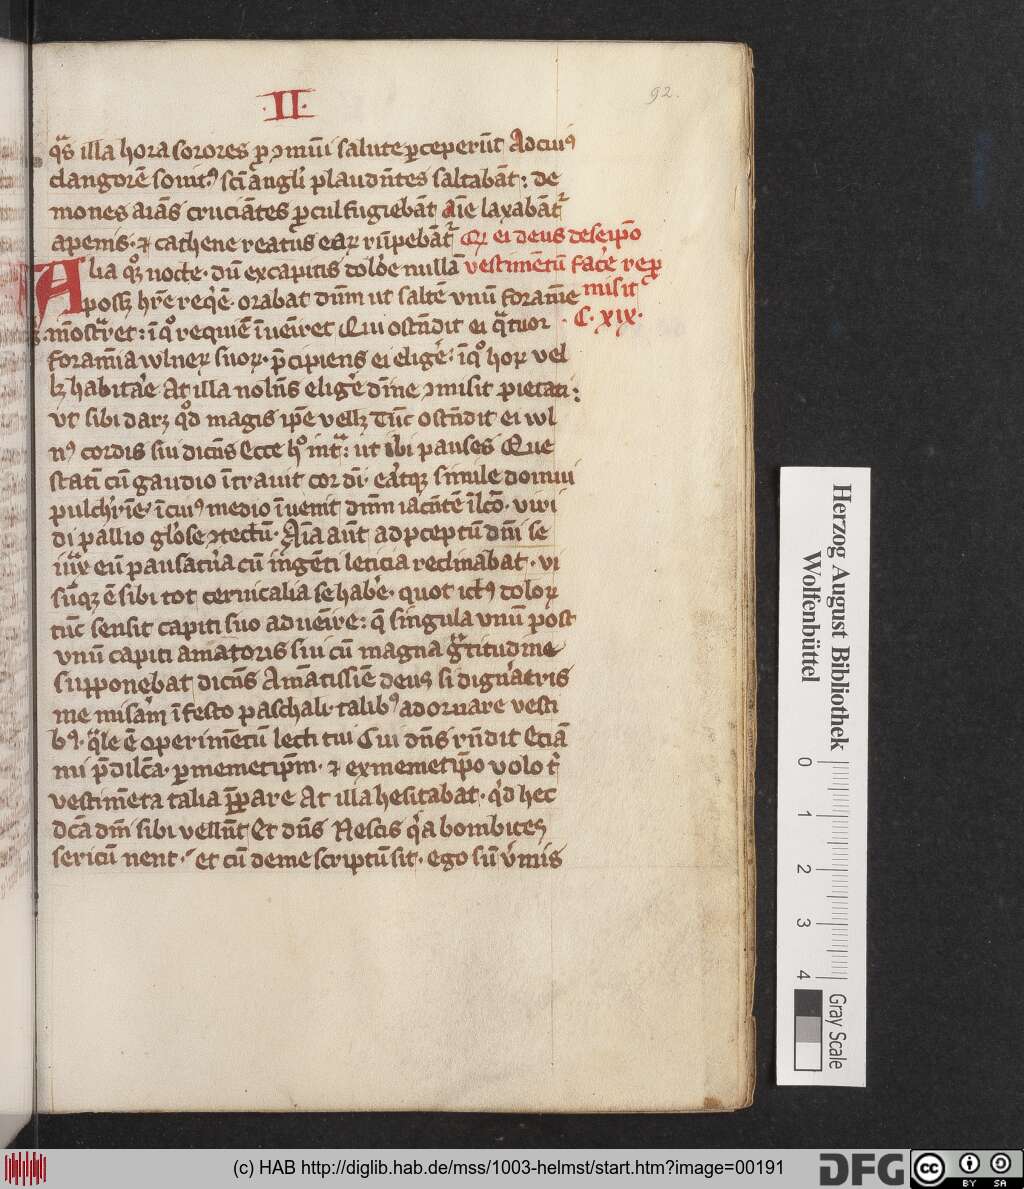 ·II·
92.
q͛s illa hora sorores ꝑ ꝯmūi salute ꝑceperūt Ad cuiꝰ
clangorē sonitꝰ sc̄i angli plaudn̄tes saltabāt: de
mones aīas cruciātes ꝓcul fugiebāt aīe laxabātᷣ
a penis · ⁊ cathene reatus eaꝝ rūpebātᷣ Qꝛ ei deus de seip̄o
Alia qꝫ nocte · dū ex capitis doloē nullā vestimētū fac̓e rep
posꝫ hr̄e req̓ē · orabat dūm ut saltē vnū foramē misit
īmōstᷓret: ī qͦ requiē īuēiret Qui ostn̄dit ei qᷓtuor · C · xix ·
foramīa wlneꝝ suoꝝ · p̄cipiens ei elig̓e: ī qͦ hoꝝ vel
lꝫ habitaē At illa noln̄s elig̓e dīne ꝯmisit pietati:
vt sibi darꝫ qͦd magis ip̄e vellꝫ Tūc ostn̄dit ei wl
nꝰ cordis sui dicn̄s Ecce hͦ intᷓ: ut ibi pauses Que
statī cū gaudio ītrauit cor dī · eātqꝫ simile domui
pulchr̓ie · ī cuiꝰ medio īuenit dm̄n iacn̄tē ī lc̄o · viri
di pallio glōse ꝯtectū · Aīa aūt ad p̄ceptū dn̄i se
iuxͣ eū pausatūa cū ingēti leticia reclinabat · vi
sūqꝫ ē sibi tot ceruicalia se hab̓e · quot ictꝰ doloꝝ
tūc sensit capiti suo aduēire: q̄ singula vnū post
vnū capiti amatoris sui cū magna gᷓtitudine
supponebat dicn̄s Amātissīe deus si dignaēris
me misam̄ ī festo paschali · talibꝰ adornare vesti
bꝰ · qᷓle ē operimētū lecti tui Cui dn̄s rn̄dit Eciā
mi p̄dilc̄a · ꝑ memetip̄m · ⁊ ex memetip̄o volo t̓
vestimēta talia p̄ꝑare At illa hesitabat · q̓d hec
dc̄a dn̄i sibi vellnt̄ Et dn̄s Nescis q̓a bombices
sericū nent · et cū de me scriptū sit · ego sū v̓mis
Herzog August Bibliothek
Wolfenbüttel
0 1 2 3 4
Gray Scale
(c) HAB http://diglib.hab.de/mss/1003-helmst/start.htm?image=00191
DFG
cc BY SA